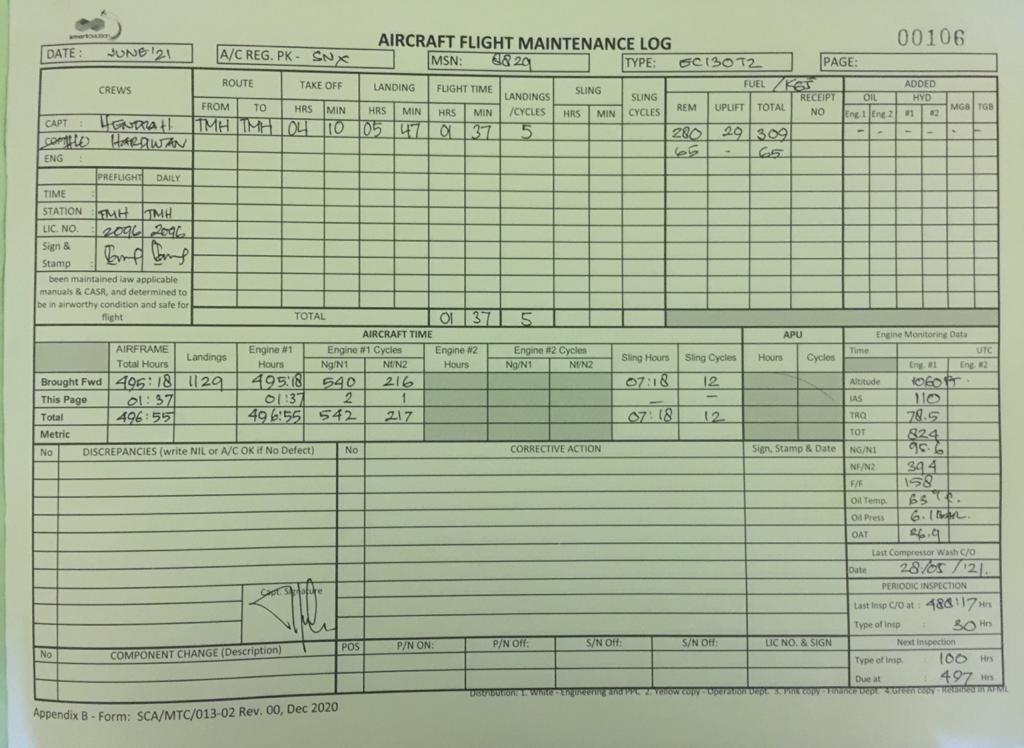 smartaviation
AIRCRAFT FLIGHT MAINTENANCE LOG
00106
DATE : JUNE '21
A/C REG. PK - SNX
MSN:
TYPE: EC130T2
PAGE:
CREWS ROUTE TAKE OFF LANDING FLIGHT TIME LANDINGS /CYCLES SLING SLING CYCLES FUEL /KGS ADDED
FROM TO HRS MIN HRS MIN HRS MIN HRS MIN REM UPLIFT TOTAL RECEIPT NO OIL HYD MGB TGB
Eng.1 Eng.2 #1 #2
CAPT : HENDRA H TMH TMH 04 10 05 47 01 37 5 280 29 309 - - - - - -
HARDWAN 65 - 65
ENG :
PREFLIGHT DAILY
TIME :
STATION : TMH TMH
LIC. NO. : 2096 2096
Sign & Stamp :
been maintained iaw applicable
manuals & CASR, and determined to
be in airworthy condition and safe for
flight
TOTAL 01 37 5
AIRCRAFT TIME APU Engine Monitoring Data
AIRFRAME Total Hours Landings Engine #1 Hours Engine #1 Cycles Engine #2 Hours Engine #2 Cycles Sling Hours Sling Cycles Hours Cycles Time UTC
Ng/N1 Nf/N2 Ng/N1 Nf/N2 Eng. #1 Eng. #2
Brought Fwd 495:18 1129 495:18 540 216 07:18 12
This Page 01:37 01:37 2 1 — —
Total 496:55 496:55 542 217 07:18 12
Metric
Altitude 1060 FT.
IAS 110
TRQ 78.5
TOT 824
NG/N1 95.6
NF/N2 394
F/F 158
Oil Temp.
Oil Press 6.1 BAR.
OAT
No DISCREPANCIES (write NIL or A/C OK if No Defect) No CORRECTIVE ACTION Sign, Stamp & Date
Last Compressor Wash C/O
Date 28/05/'21.
PERIODIC INSPECTION
Last Insp C/O at : Hrs
Type of Insp : 30 Hrs
Next Inspection
Type of Insp. : 100 Hrs
Due at : 497 Hrs
Capt. Signature
No COMPONENT CHANGE (Description) POS P/N ON: P/N Off: S/N Off: S/N Off: LIC NO. & SIGN
Distribution: 1. White - Engineering and PPC 2. Yellow copy - Operation Dept. 3. Pink copy - Finance Dept. 4.Green copy - Retained in AFML
Appendix B - Form: SCA/MTC/013-02 Rev. 00, Dec 2020